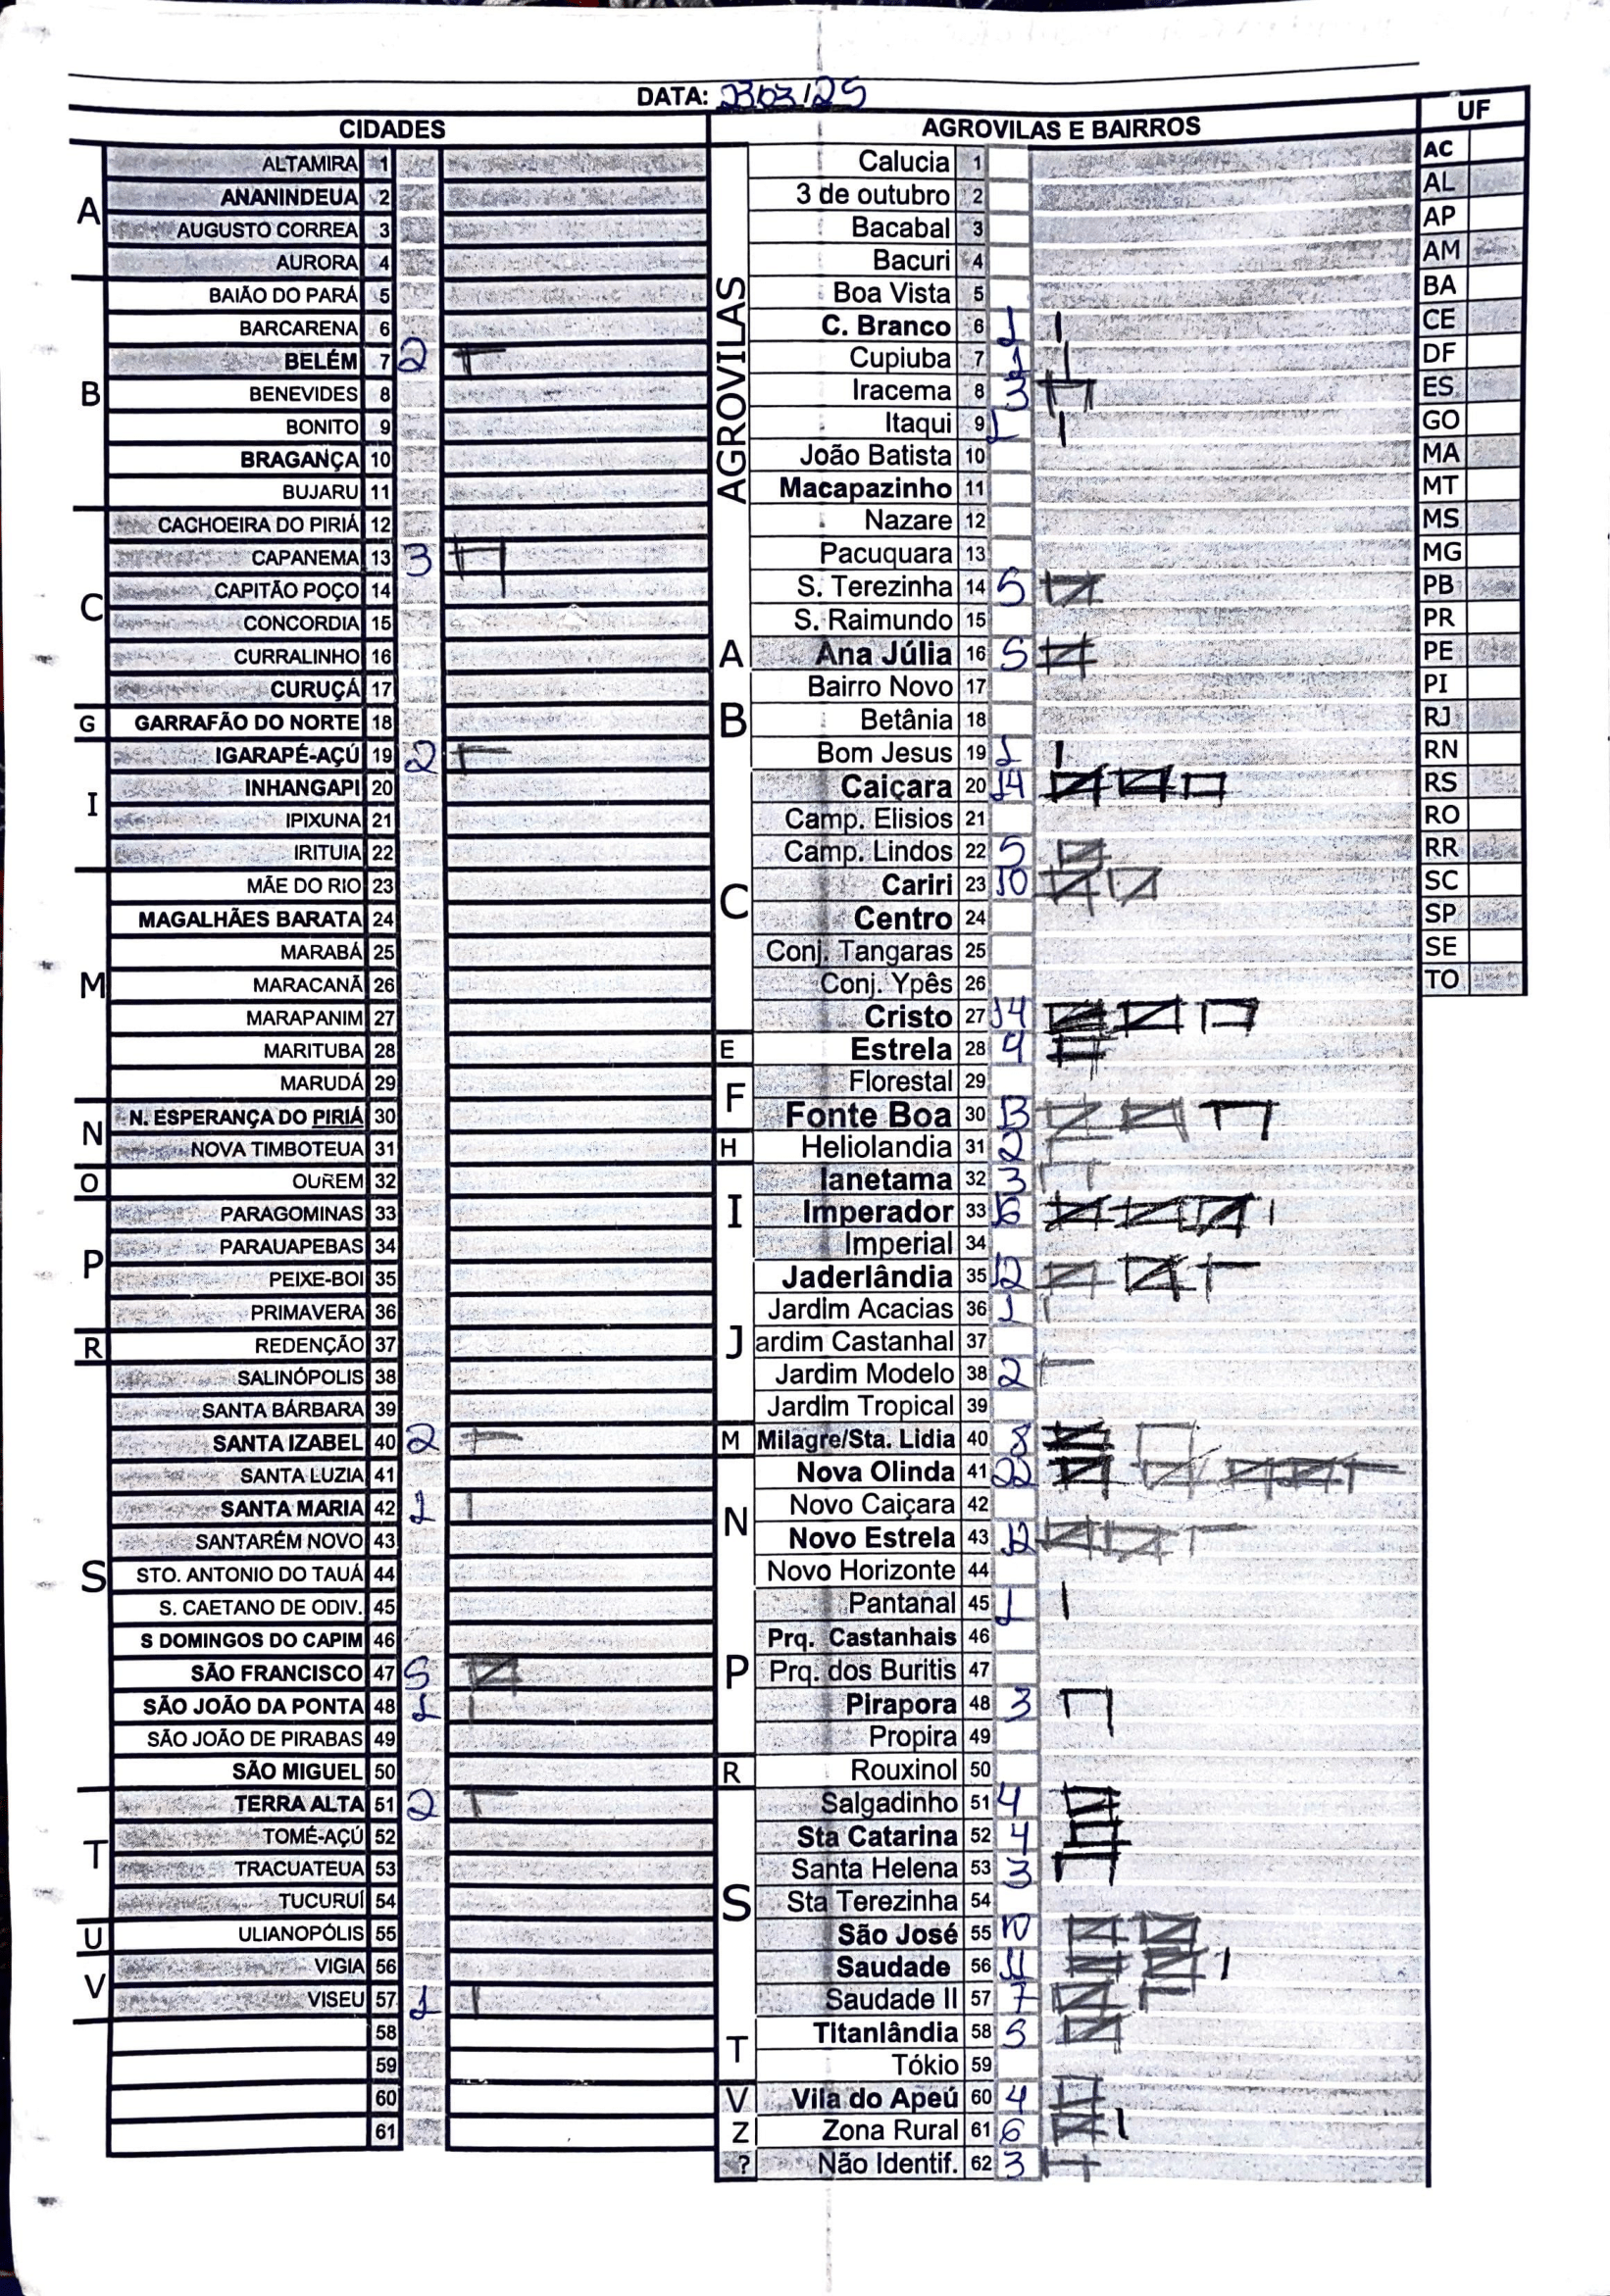 DATA: 23/03/25
CIDADES
A
ALTAMIRA 1
ANANINDEUA 2
AUGUSTO CORREA 3
AURORA 4
B
BAIÃO DO PARÁ 5
BARCARENA 6
BELÉM 7 2
BENEVIDES 8
BONITO 9
BRAGANÇA 10
BUJARU 11
C
CACHOEIRA DO PIRIÁ 12
CAPANEMA 13 3
CAPITÃO POÇO 14
CONCORDIA 15
CURRALINHO 16
CURUÇÁ 17
G
GARRAFÃO DO NORTE 18
I
IGARAPÉ-AÇÚ 19 2
INHANGAPI 20
IPIXUNA 21
IRITUIA 22
M
MÃE DO RIO 23
MAGALHÃES BARATA 24
MARABÁ 25
MARACANÃ 26
MARAPANIM 27
MARITUBA 28
MARUDÁ 29
N
N. ESPERANÇA DO PIRIÁ 30
NOVA TIMBOTEUA 31
O
OUREM 32
P
PARAGOMINAS 33
PARAUAPEBAS 34
PEIXE-BOI 35
PRIMAVERA 36
R
REDENÇÃO 37
S
SALINÓPOLIS 38
SANTA BÁRBARA 39
SANTA IZABEL 40 2
SANTA LUZIA 41
SANTA MARIA 42 1
SANTARÉM NOVO 43
STO. ANTONIO DO TAUÁ 44
S. CAETANO DE ODIV. 45
S DOMINGOS DO CAPIM 46
SÃO FRANCISCO 47 5
SÃO JOÃO DA PONTA 48 1
SÃO JOÃO DE PIRABAS 49
SÃO MIGUEL 50
T
TERRA ALTA 51 2
TOMÉ-AÇÚ 52
TRACUATEUA 53
TUCURUÍ 54
U
ULIANOPÓLIS 55
V
VIGIA 56
VISEU 57 1
58
59
60
61
AGROVILAS E BAIRROS
AGROVILAS
Calucia 1
3 de outubro 2
Bacabal 3
Bacuri 4
Boa Vista 5
C. Branco 6 1
Cupiuba 7 1
Iracema 8 3
Itaqui 9 1
João Batista 10
Macapazinho 11
Nazare 12
Pacuquara 13
S. Terezinha 14 5
S. Raimundo 15
A
Ana Júlia 16 5
B
Bairro Novo 17
Betânia 18
Bom Jesus 19 1
C
Caiçara 20 14
Camp. Elisios 21
Camp. Lindos 22 5
Cariri 23 10
Centro 24
Conj. Tangaras 25
Conj. Ypês 26
Cristo 27 14
E
Estrela 28 4
F
Florestal 29
Fonte Boa 30 13
H
Heliolandia 31 2
I
Ianetama 32 3
Imperador 33 16
Imperial 34
J
Jaderlândia 35 12
Jardim Acacias 36 1
ardim Castanhal 37
Jardim Modelo 38 2
Jardim Tropical 39
M
Milagre/Sta. Lidia 40 8
N
Nova Olinda 41 22
Novo Caiçara 42
Novo Estrela 43 12
Novo Horizonte 44
P
Pantanal 45 1
Prq. Castanhais 46
Prq. dos Buritis 47
Pirapora 48 3
Propira 49
R
Rouxinol 50
S
Salgadinho 51 4
Sta Catarina 52 4
Santa Helena 53 3
Sta Terezinha 54
São José 55 10
Saudade 56 11
Saudade II 57 7
T
Titanlândia 58 5
Tókio 59
V
Vila do Apeú 60 4
Z
Zona Rural 61 6
?
Não Identif. 62 3
UF
AC
AL
AP
AM
BA
CE
DF
ES
GO
MA
MT
MS
MG
PB
PR
PE
PI
RJ
RN
RS
RO
RR
SC
SP
SE
TO